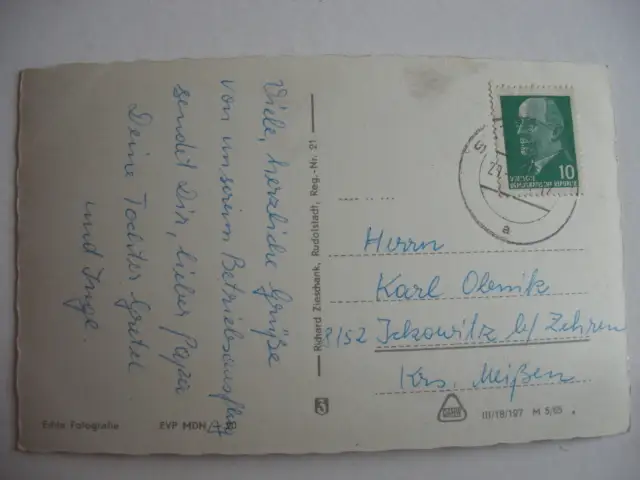 Viele, herzliche Grüße
von unserem Betriebsausflug
sendet Dir, lieber Papa
Deine Tochter Gretel
und Inge.
Echte Fotografie
EVP MDN
Richard Zieschank, Rudolstadt, Reg.-Nr. 21
10
DEUTSCHE
DEMOKRATISCHE REPUBLIK
a
Herrn
Karl Olenik
8152 Ickowitz b/ Zehren
Krs. Meißen
III/18/197 M 5/65